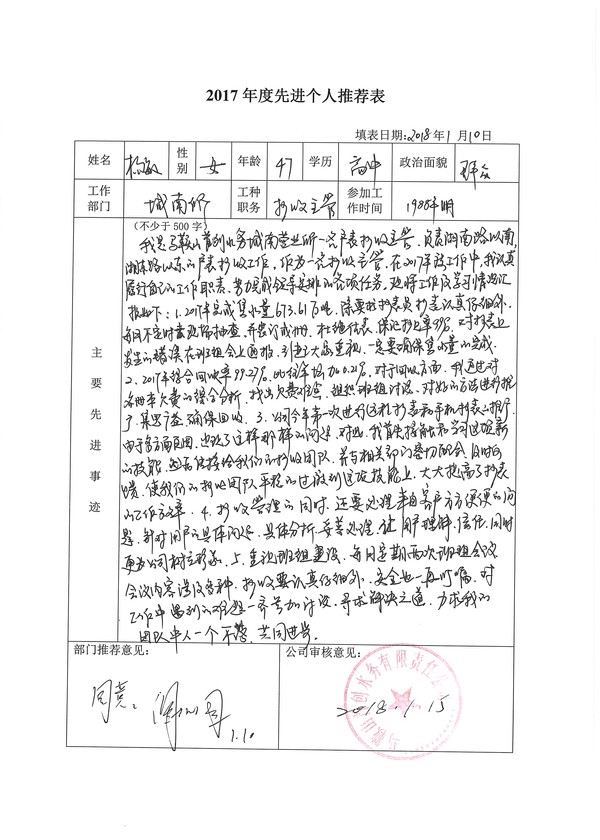 2017 年度先进个人推荐表
填表日期:2018年1月10日
姓名 杨敏 性别 女 年龄 47 学历 高中 政治面貌 群众
工作部门 城南所 工种职务 抄收主管 参加工作时间 1988年
主要先进事迹
(不少于 500 字)
我是马鞍山首创水务城南营业所一名户表抄收主管,负责湖南路以南,
湖东路以东的户表抄收工作,作为一名抄收主管,在2017年的工作中,我认真
履行自己的工作职责,努力完成领导安排的各项任务,现将工作及学习情况汇
报如下:1.2017年完成售水量673.61万吨,除要求抄表员抄表认真仔细外,
每日不定时去现场抽查,并装订成册,杜绝估表,保证抄表率99%,对抄表上
发生的错误在班组会上通报,引起大家重视,一定要确保售水量的完成。
2、2017年综合回收率99.27%,比往年增加0.21%,对于回收方面,我通过对
各册本欠费的综合分析,找出欠费难点,组织班组讨论,对好的方法进行推
广,集思广益,确保回收。3、公司今年第一次进行远传抄表和手机抄表的推广,
由于多方面原因,出现了这样那样的问题,对此,我首先接触和学习这项新
的技能,然后传授给我们的抄收团队,并与相关部门密切配合,及时反
馈,使我们的抄收团队平稳的过渡到这项技能上,大大提高了抄表
的工作效率。4、抄收管理的同时,还要处理来自客户方方便便的问
题,针对用户的具体问题,具体分析,妥善处理,让用户理解、信任,同时
更为公司树立形象。5、重视班组建设,每日定期两次班组会议
会议内容涉及各种,抄收要认真仔细外,安全也一再叮嘱,对
工作中遇到的难题一齐参加讨论,寻求解决之道,力求我们
团队中人一个不落,共同进步。
部门推荐意见:
同意。
1.10
公司审核意见:
2018.1.15
马鞍山首创水务有限责任公司